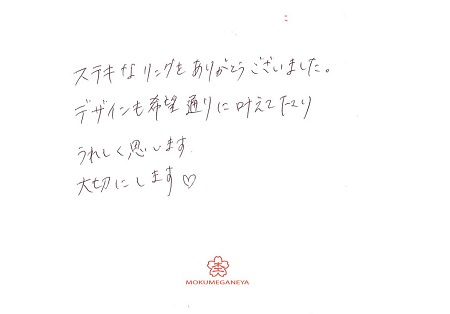 ステキなリングをありがとうございました。
デザインも希望通りに叶えて下さり
うれしく思います
大切にします♡
MOKUMEGANEYA